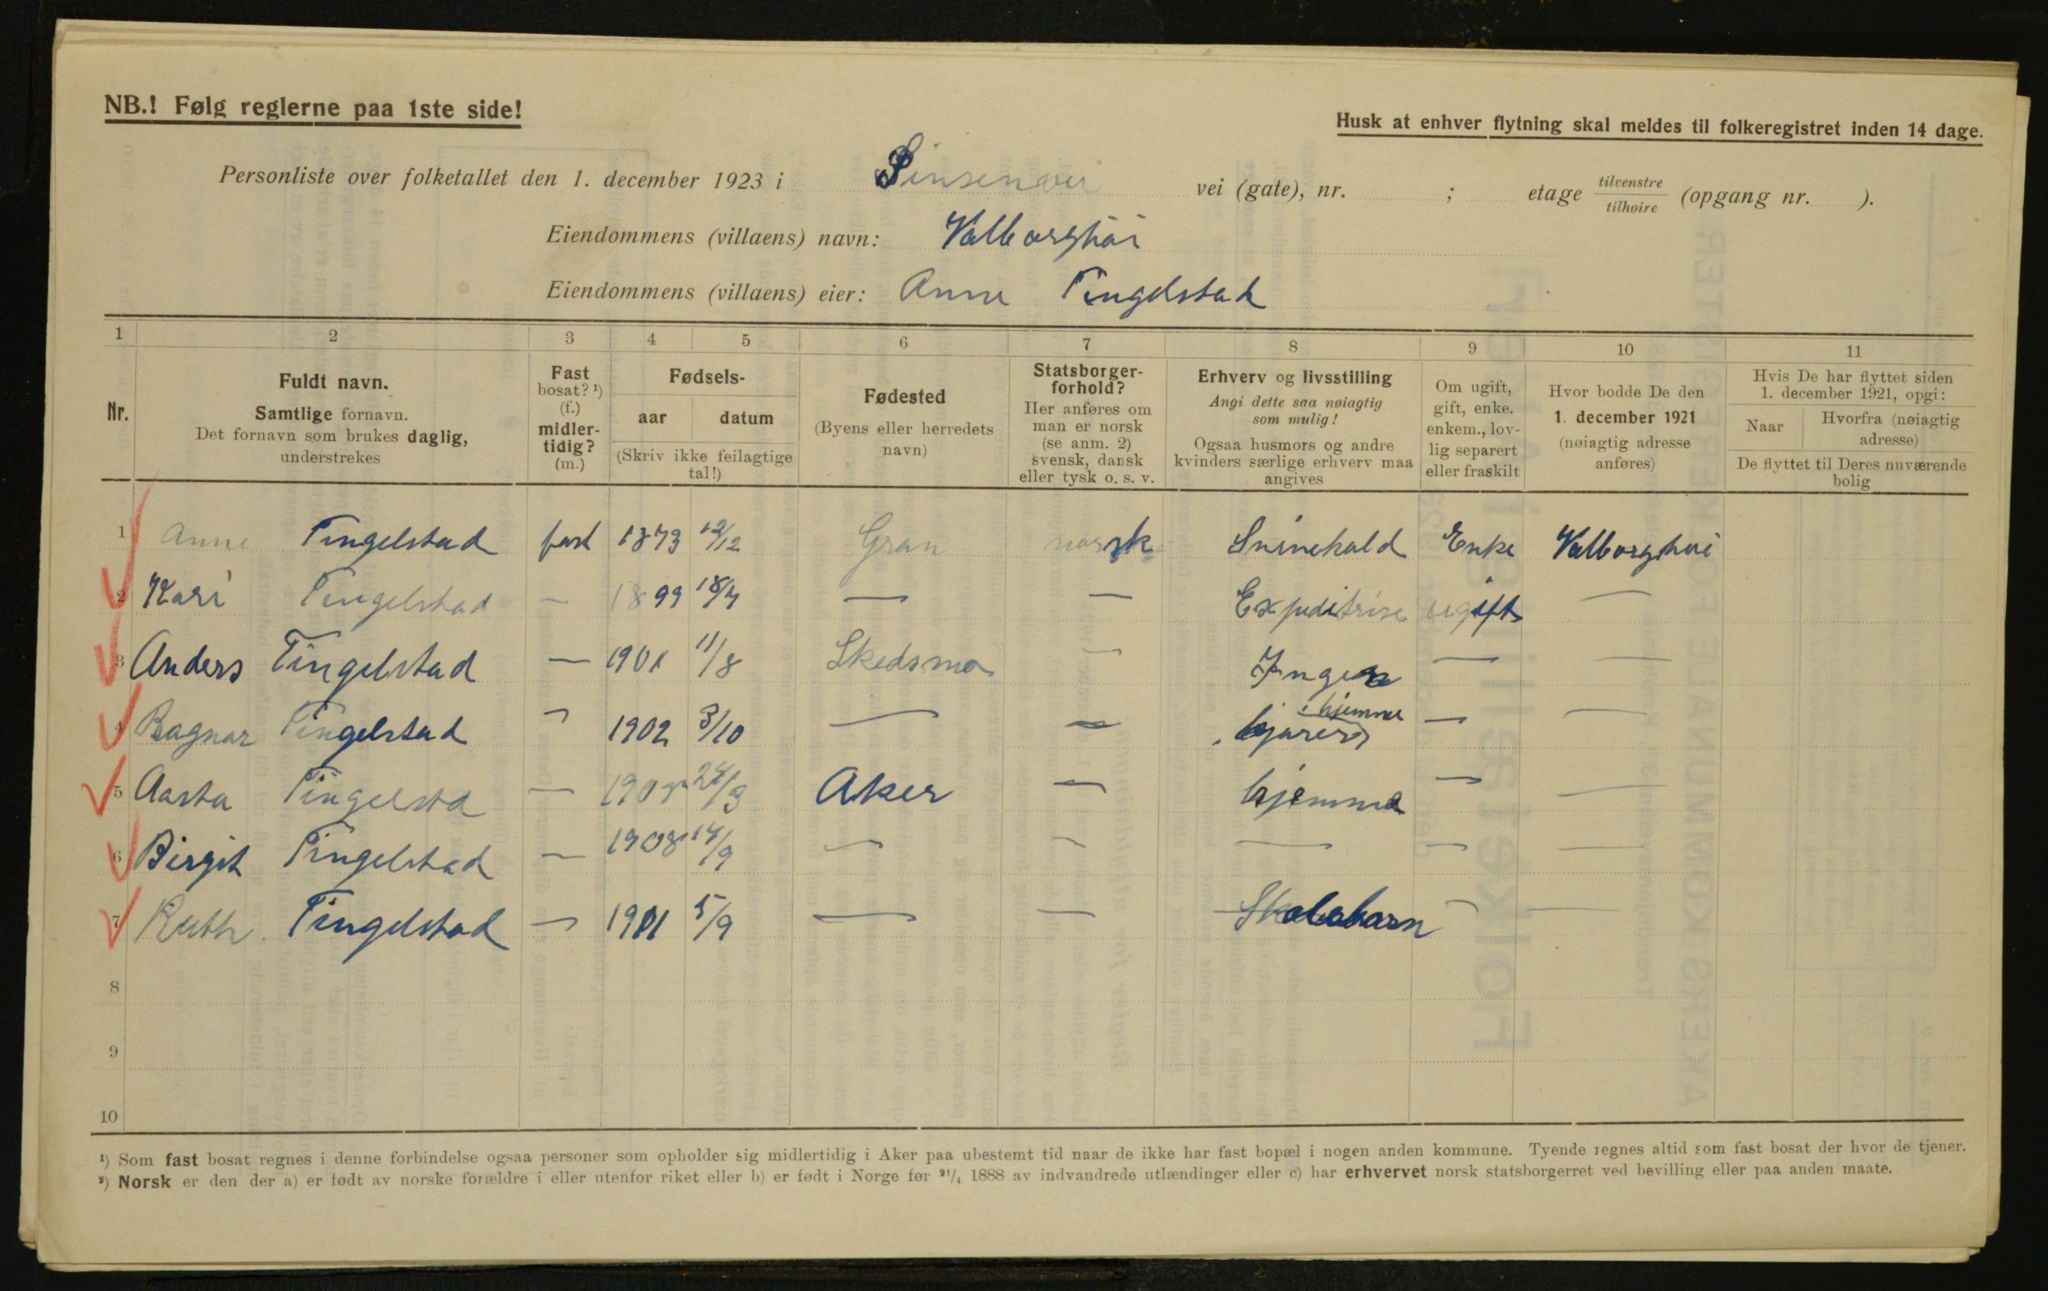 NB.! Følg reglerne paa 1ste side!
Husk at enhver flytning skal meldes til folkeregistret inden 14 dage.
Personliste over folketallet den 1. december 1923 i Sinsenvei vei (gate), nr. ; etage tilvenstre tilhøire (opgang nr. ).
Eiendommens (villaens) navn: Valborghöi
Eiendommens (villaens) eier: Anne Tingelstad
1 2 3 4 5 6 7 8 9 10 11
Nr.
Fuldt navn.
Samtlige fornavn.
Det fornavn som brukes daglig,
understrekes
Fast
bosat? ¹)
(f.)
midler-
tidig?
(m.)
Fødsels-
aar datum
(Skriv ikke feilagtige
tal!)
Fødested
(Byens eller herredets
navn)
Statsborger-
forhold?
Her anføres om
man er norsk
(se anm. 2)
svensk, dansk
eller tysk o. s. v.
Erhverv og livsstilling
Angi dette saa nøiagtig
som mulig!
Ogsaa husmors og andre
kvinders særlige erhverv maa
angives
Om ugift,
gift, enke.
enkem., lov-
lig separert
eller fraskilt
Hvor bodde De den
1. december 1921
(nøiagtig adresse
anføres)
Hvis De har flyttet siden
1. december 1921, opgi:
Naar
Hvorfra (nøiagtig
adresse)
De flyttet til Deres nuværende
bolig
1 Anne Tingelstad fast 1873 12/12 Gran norsk Enke Valborghöi
2 Kari Tingelstad — 1899 18/7 — — Expeditrise ugift —
3 Anders Tingelstad — 1901 11/8 Skedsmo — Ingen — —
4 Ragnar Tingelstad — 1902 3/10 — — hjemme — —
5 Aasta Tingelsta — 24/3 Aker — hjemme — —
6 Birgit Tingelstad — 1908 14/9 — — — — —
7 Ruth Tingelstad — 1911 5/9 — — Skolebarn — —
8
9
10
¹) Som fast bosat regnes i denne forbindelse ogsaa personer som opholder sig midlertidig i Aker paa ubestemt tid naar de ikke har fast bopæl i nogen anden kommune. Tyende regnes altid som fast bosat der hvor de tjener.
²) Norsk er den der a) er født av norske forældre i eller utenfor riket eller b) er født i Norge før ²¹/₄ 1888 av indvandrede utlændinger eller c) har erhvervet norsk statsborgerret ved bevilling eller paa anden maate.